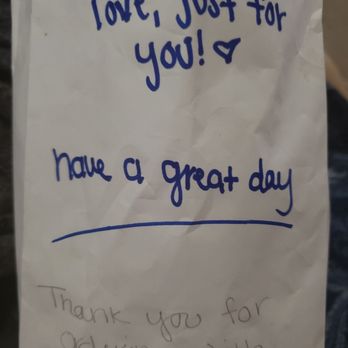 love, just for
you! ♡
have a great day
Thank you for
ordering with